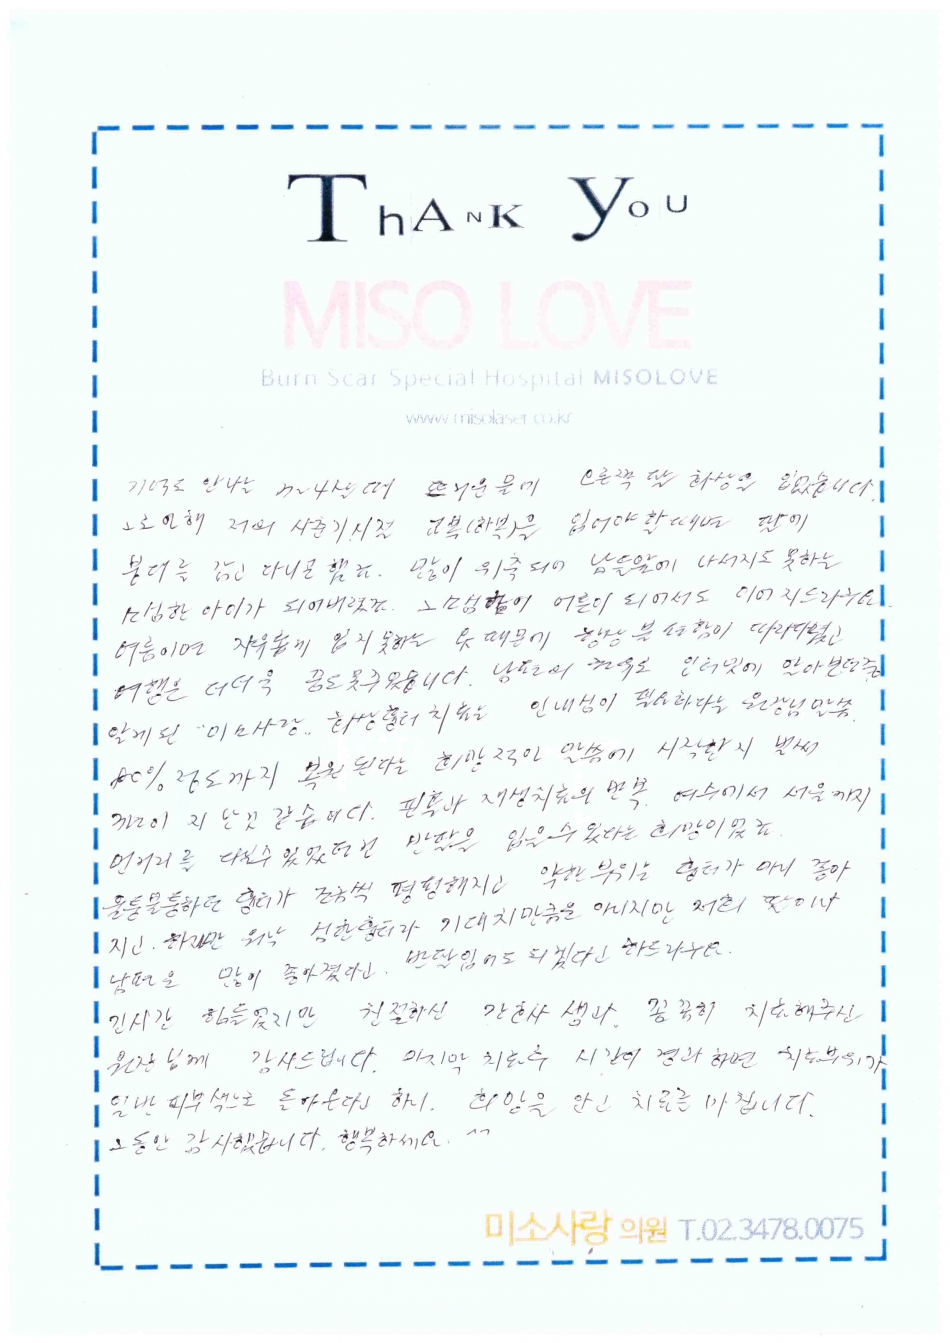 Thank You
MISO LOVE
Burn Scar Special Hospital MISOLOVE
www.misolaser.co.kr
기억도 안나는 3~4살때 뜨거운물에 오른쪽 팔 화상을 입었습니다.
그로인해 저의 사춘기시절 교복(하복)을 입어야할때면 팔에
붕대를 감고 다니곤 했죠. 많이 위축되어 남들앞에 나서지도 못하는
소심한 아이가 되어버렸죠. 그소심함이 어른이 되어서도 이어지드라구요.
여름이면 자유롭게 입지못하는 옷때문에 항상 불편함이 따라다녔고
여행은 더더욱 꿈도못꾸었습니다. 남편의 권유로 인터넷에 알아보던중
알게된 "미소사랑" 화상흉터치료는 인내심이 필요하다는 원장님말씀.
80%정도까지 복원된다는 희망적인 말씀에 시작한지 벌써
3년이 지난것 같습니다. 핀홀과 재생치료의 반복. 여수에서 서울까지
먼거리를 다닐수있었던건 반팔을 입을수있다는 희망이었죠.
울퉁불퉁하던 흉터가 조금씩 평평해지고 약한부위는 흉터가 마니 좋아
지고. 하지만 워낙 심한흉터라 기대치만큼은 아니지만 저희 딸이나
남편은 많이 좋아졌다고. 반팔입어도 되겠다고 하드라구요.
긴시간 힘들었지만 친절하신 간호사 샘과. 꼼꼼히 치료해주신
원장님께 감사드립니다. 마지막 치료후 시간이 경과하면 치료부위가
일반피부색으로 돌아온다고 하니. 희망을 안고 치료를 마칩니다.
그동안 감사했습니다. 행복하세요. ^^
미소사랑의원 T.02.3478.0075